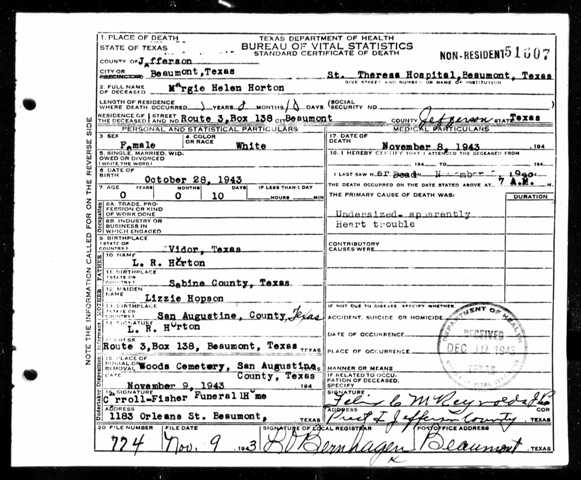 1. PLACE OF DEATH
TEXAS DEPARTMENT OF HEALTH
STATE OF TEXAS
BUREAU OF VITAL STATISTICS
STANDARD CERTIFICATE OF DEATH
NON-RESIDENT 51607
COUNTY OF Jefferson
CITY OR
PRECINCT NO. Beaumont, Texas
St. Theresa Hospital, Beaumont, Texas
GIVE STREET AND NUMBER OR NAME OF INSTITUTION
2. FULL NAME
OF DECEASED Margie Helen Horton
LENGTH OF RESIDENCE
WHERE DEATH OCCURRED YEARS MONTHS 10 DAYS
(SOCIAL
SECURITY NO.
RESIDENCE OF (STREET
THE DECEASED AND NO Route 3, Box 138 CITY Beaumont COUNTY Jefferson STATE Texas
PERSONAL AND STATISTICAL PARTICULARS
MEDICAL PARTICULARS
3. SEX Female
4. COLOR
OR RACE White
17. DATE OF
DEATH November 8, 1943 194
5. SINGLE, MARRIED, WID-
OWED OR DIVORCED
(WRITE THE WORD)
18. I HEREBY CERTIFY THAT I ATTENDED THE DECEASED FROM
194 TO 194
6. DATE OF
BIRTH October 28, 1943
I LAST SAW H er Dead
THE DEATH OCCURRED ON THE DATE STATED ABOVE AT 7 A. M.
7. AGE YEARS MONTHS DAYS IF LESS THAN 1 DAY
0 0 10 HOURS MIN
THE PRIMARY CAUSE OF DEATH WAS: DURATION
8A. TRADE, PRO-
FESSION OR KIND
OF WORK DONE
Undersized, apparently
Heart trouble
8B. INDUSTRY OR
BUSINESS IN
WHICH ENGAGED
9. BIRTHPLACE
(STATE OR
COUNTRY) Vidor, Texas
CONTRIBUTORY
CAUSES WERE:
10. NAME
L. R. Horton
11. BIRTHPLACE
(STATE OR
COUNTRY) Sabine County, Texas
12. MAIDEN
NAME Lizzie Hopson
13. BIRTHPLACE
(STATE OR
COUNTRY) San Augustine, County, Texas
IF NOT DUE TO DISEASE, SPECIFY WHETHER:
ACCIDENT, SUICIDE OR HOMICIDE
14. SIGNATURE
L. R. Horton
DATE OF OCCURRENCE
ADDRESS
Route 3, Box 138, Beaumont, Texas TEXAS
PLACE OF OCCURRENCE
15. PLACE OF
BURIAL OR
REMOVAL Woods Cemetery, San Augustine,
County, Texas
MANNER OR MEANS
November 9, 1943 194
IF RELATED TO OCCU-
PATION OF DECEASED,
SPECIFY
DEPARTMENT OF HEALTH
RECEIVED
DEC 1943
SIGNATURE
Carroll-Fisher Funeral Home
ADDRESS
1183 Orleans St. Beaumont, TEXAS
SIGNATURE
COR
ADDRESS
Prect I Jefferson County TEXAS
20. FILE NUMBER
774
FILE DATE
Nov. 9 1943
SIGNATURE OF LOCAL REGISTRAR
Bernhagen
POST OFFICE ADDRESS
Beaumont TEXAS
NOTE THE INFORMATION CALLED FOR ON THE REVERSE SIDE.
FATHER
MOTHER